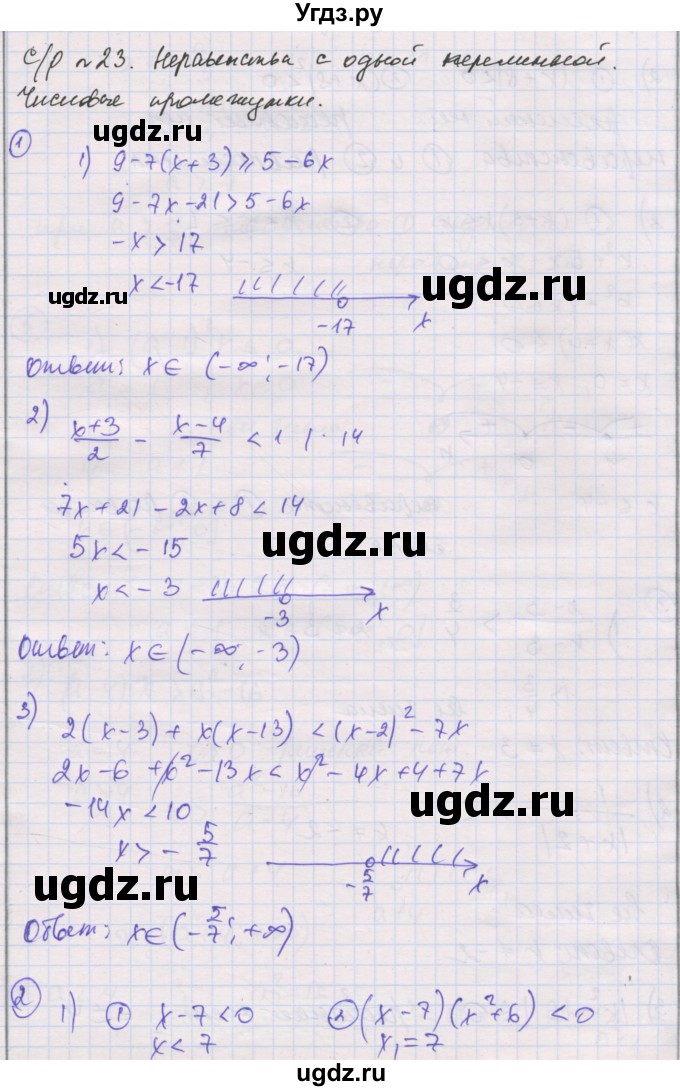 Угдз.ру
С/р №23. Неравенства с одной переменной.
Числовые промежутки.
① 1) 9-7(x+3)≥5-6x
ugdz.ru ugdz.ru
9-7x-21>5-6x
-x>17
x<-17
ugdz.ru ugdz.ru
-17 x
Ответ: x∈(-∞;-17)
2) (x+3)/2 - (x-4)/7 <1 | · 14
7x+21-2x+8<14
ugdz.ru ugdz.ru
5x<-15
x<-3
-3 x
Ответ: x∈(-∞;-3)
3) 2(x-3)+x(x-13)<(x-2)²-7x
2x-6+x²-13x<x²-4x+4+7x
ugdz.ru ugdz.ru
-14x<10
x>-5/7
-5/7 x
ugdz.ru
Ответ: x∈(-5/7;+∞)
② 1) ① x-7<0 ② (x-7)(x²+6)<0
x<7 x₁=7
ugdz.ru ugdz.ru
Угдз.ру